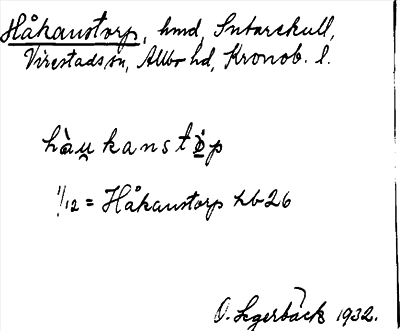 Håkanstorp, hmd, Sutarekull,
Virestads sn, Allbo hd, Kronob. l.
hàu̯kanstòp
1/12 = Håkanstorp hb 26
O. Legerbäck 1932.